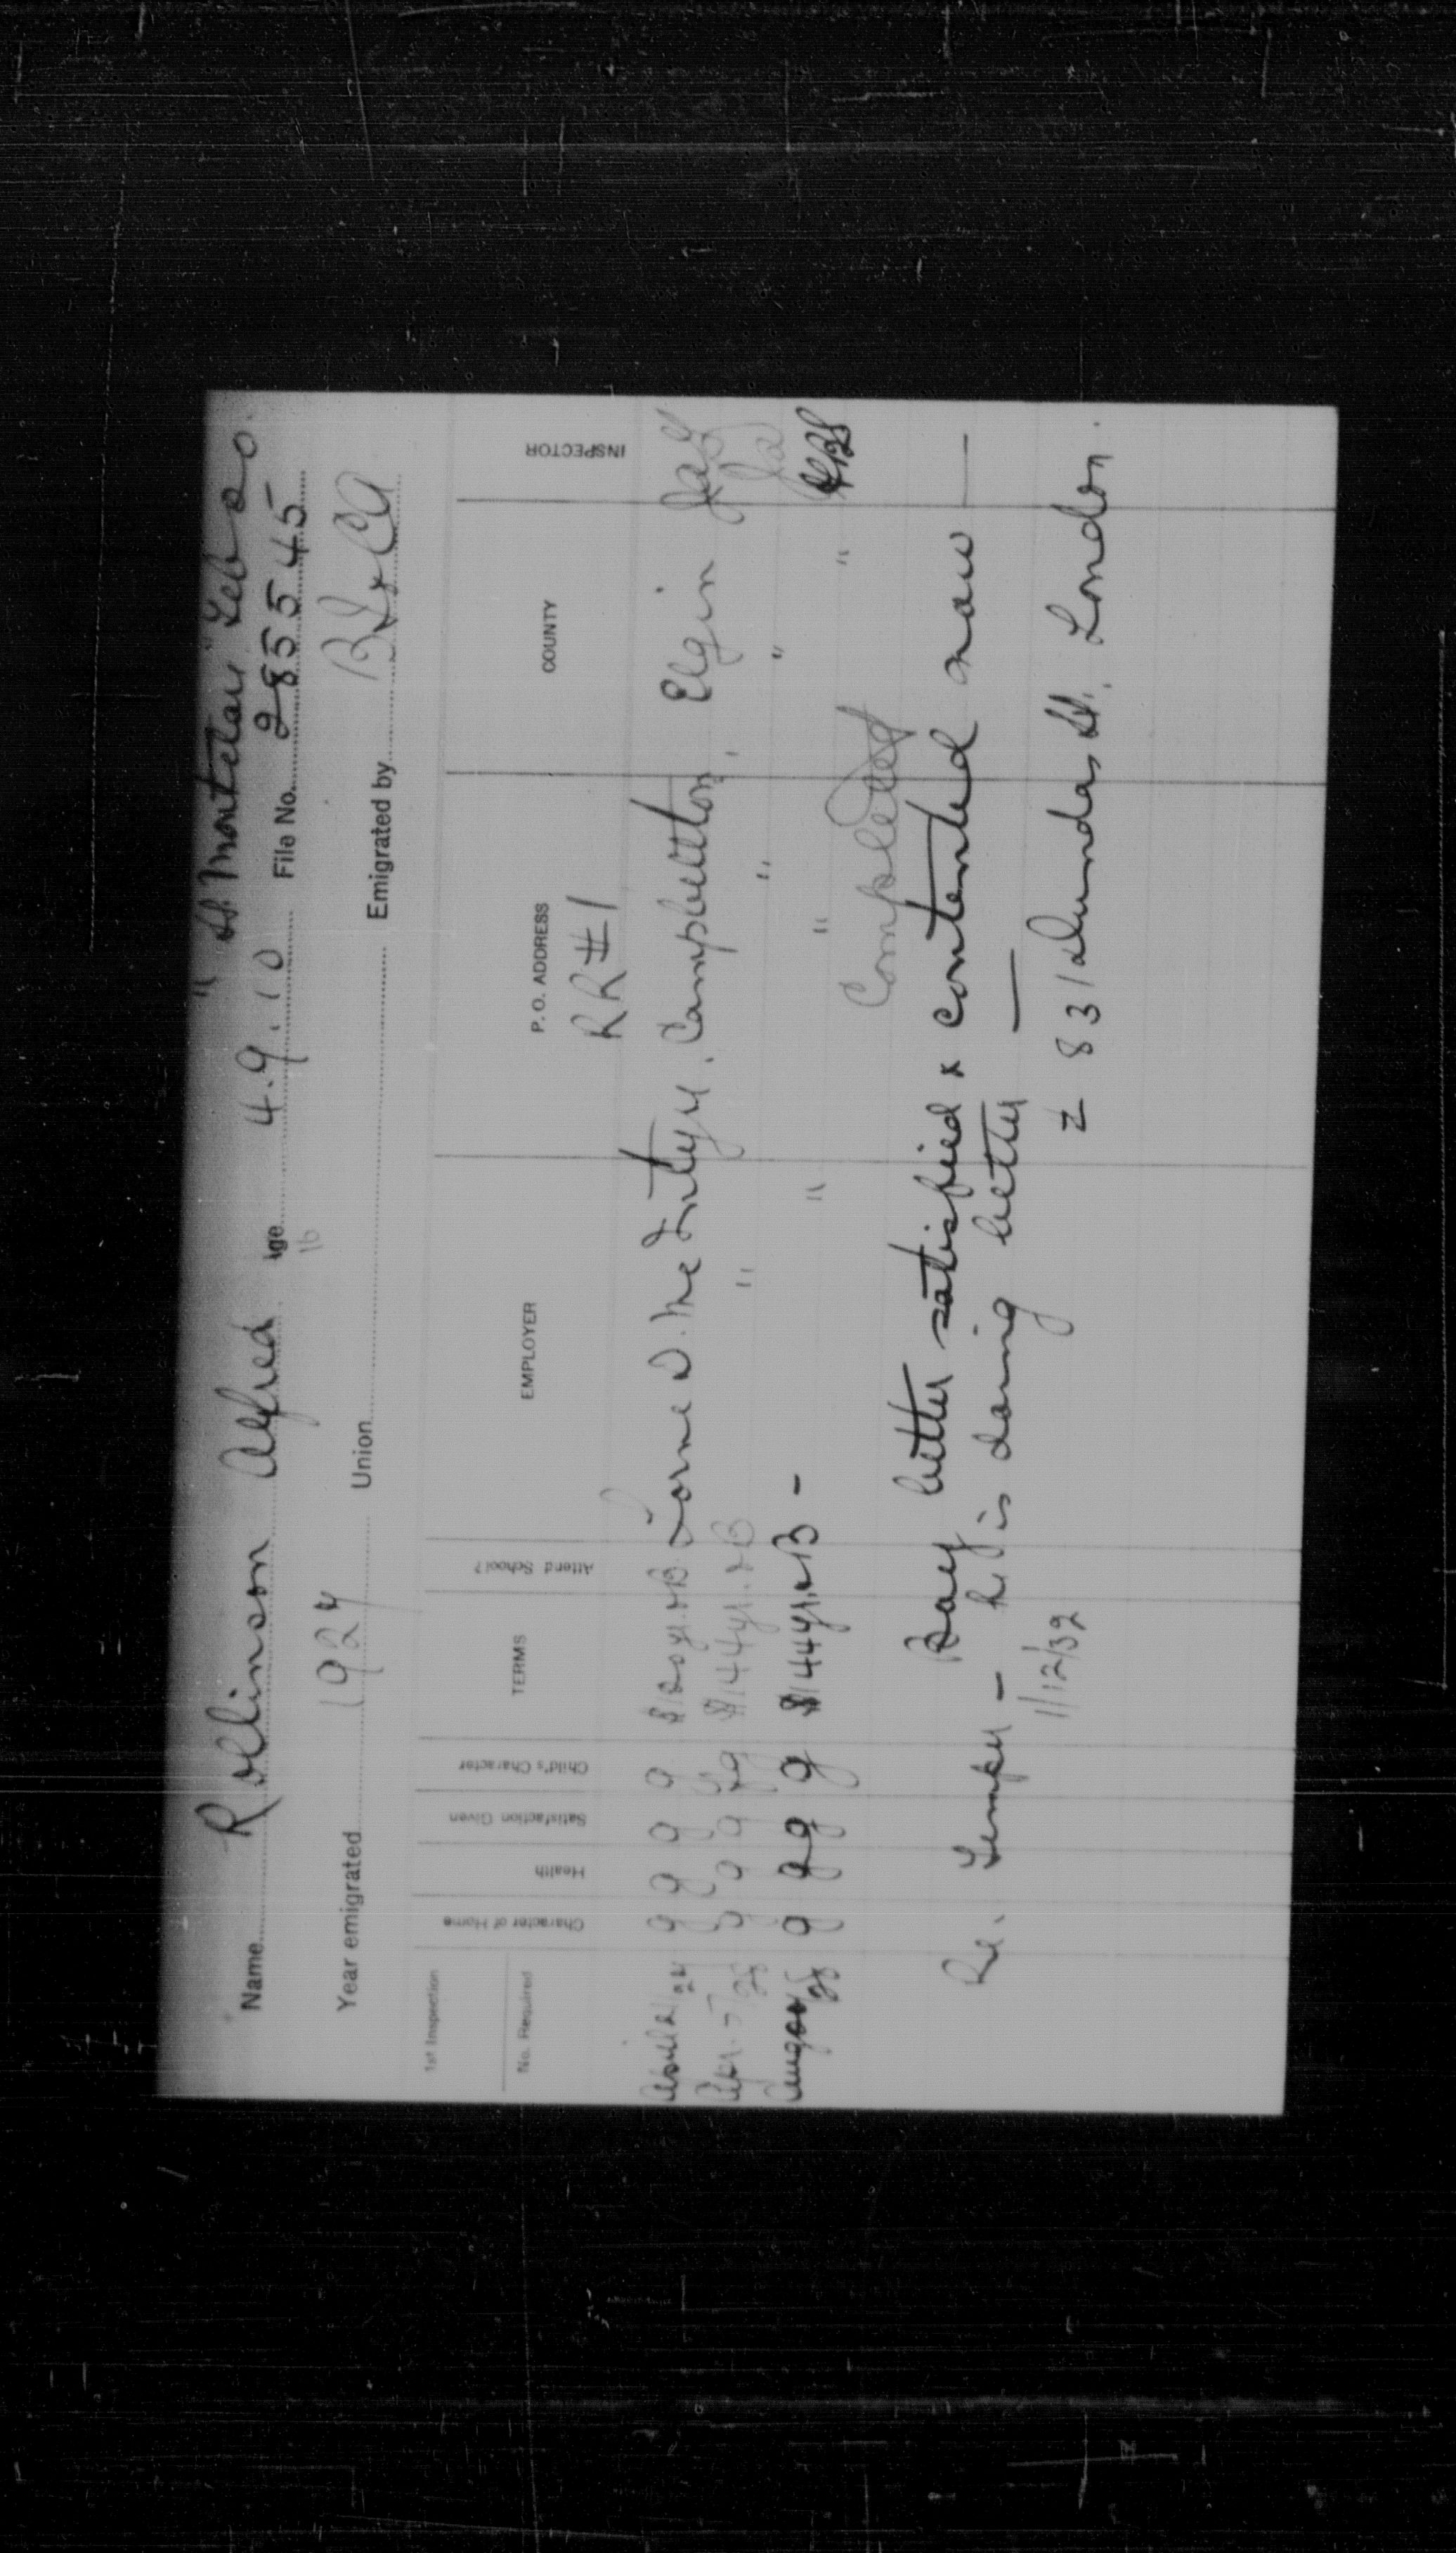 " SS. Montclair" Feb 20.
Name Rollinson Alfred Age 4.9.10 File No. 285545
16
Year emigrated 1927 Union Emigrated by BI&CA
1st Inspection
No. Required
Character of Home
Health
Satisfaction Given
Child's Character
TERMS
Attend School?
EMPLOYER
P. O. ADDRESS
COUNTY
INSPECTOR
RR#1
g g g g $120 yr. &B Lorne D. McIntyre, Campbellton, Elgin
Apr. 5 28 g g g $144 yr. &B " " "
Aug 28 g g g g $144 yr. &B - " " "
Completed
Boy better satisfied & contented now —
Re. - he is doing better —
1/12/32 831 Dundas St., London.